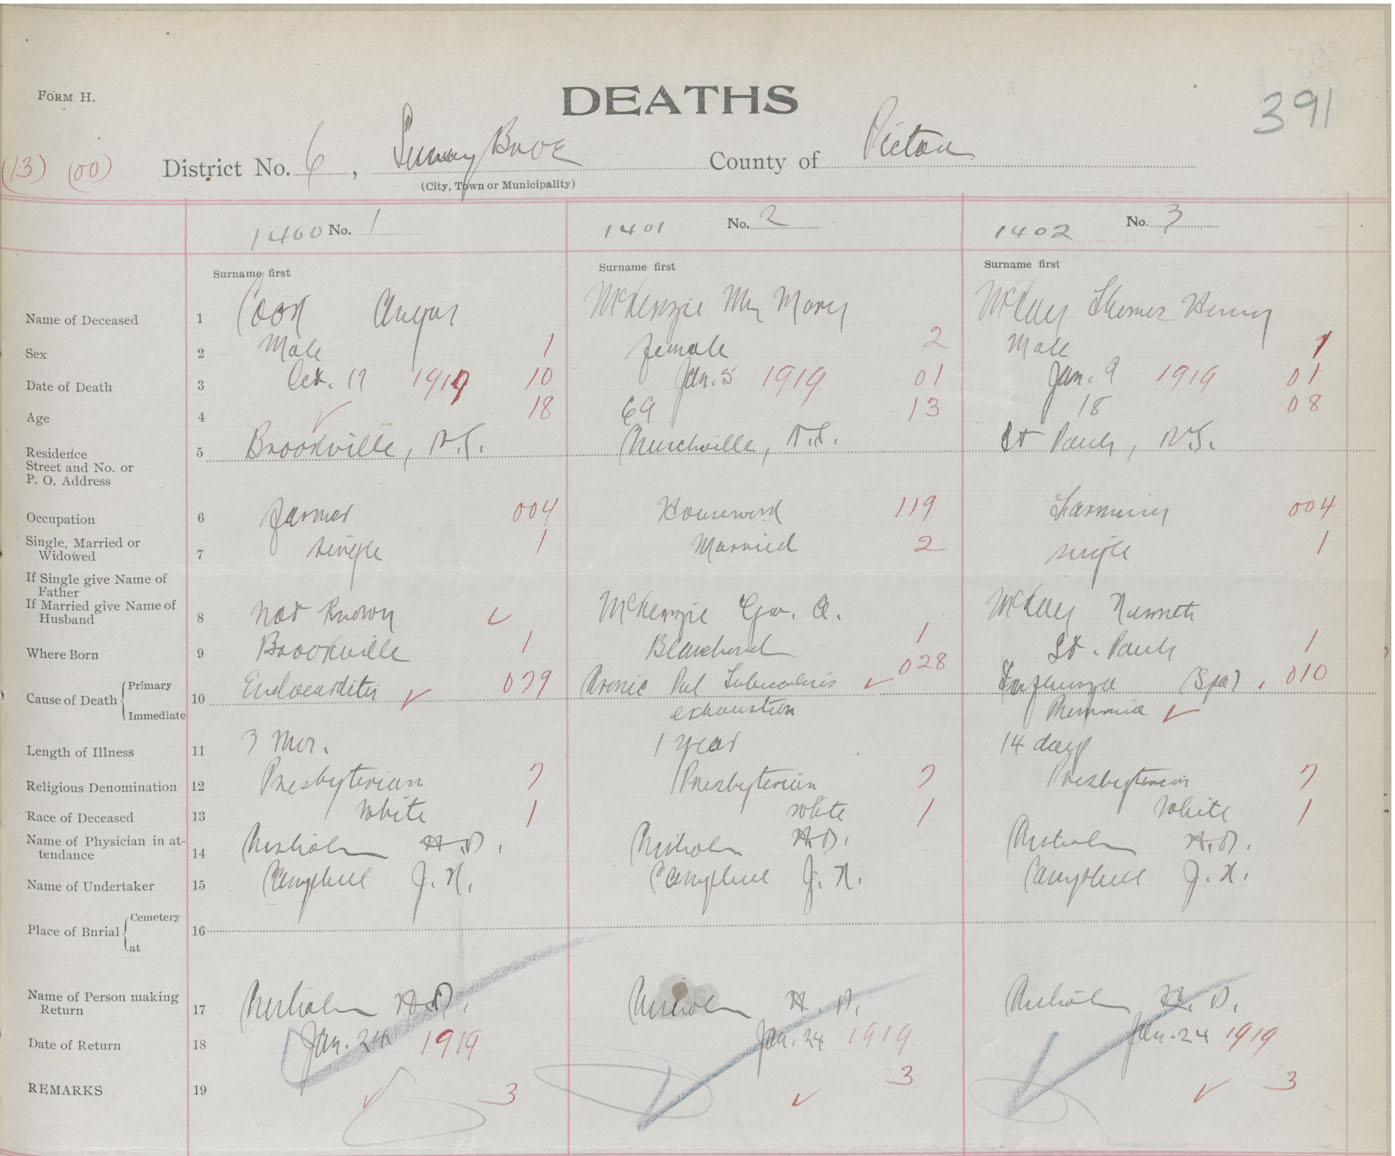 FORM H.
DEATHS
391
(13) (00)
District No. 6, Sunny Brae County of Pictou
(City, Town or Municipality)
1400 No. 1 1401 No. 2 1402 No. 3
Surname first Surname first Surname first
Name of Deceased 1 Angus McKenzie Mary McKay Thomas Henry
Sex 2 Male 1 female 2 Male 1
Date of Death 3 19 1919 10 Jan. 5 1919 01 Jan. 9 1919 01
Age 4 18 69 13 18 08
Residence 5 Brookville, N.S. Churchville, N.S. St Pauls, N.S.
Street and No. or
P. O. Address
Occupation 6 farmer 004 Housework 119 Farming 004
Single, Married or 7 single 1 Married 2 single 1
Widowed
If Single give Name of
Father
If Married give Name of 8 Not Known McKenzie Geo. A. McKay Kenneth
Husband
Where Born 9 Brookville 1 Blanchard 1 St. Pauls 1
Cause of Death Primary 10 Endocarditis 079 Cronic Pul Tuberculosis 028 Influenza (Spa) 010
Immediate exhaustion Pneumonia
Length of Illness 11 3 Mos. 1 year 14 days
Religious Denomination 12 Presbyterian 7 Presbyterian 7 Presbyterian 7
Race of Deceased 13 White 1 white 1 White 1
Name of Physician in at- 14 H.D. H.D. H.D.
tendance
Name of Undertaker 15 Campbell J. N. Campbell J. N. Campbell J. N.
Place of Burial Cemetery 16
at
Name of Person making 17 H.D. H. D. H. D.
Return
Date of Return 18 Jan. 24 1919 Jan. 24 1919 Jan. 24 1919
REMARKS 19 3 3 3